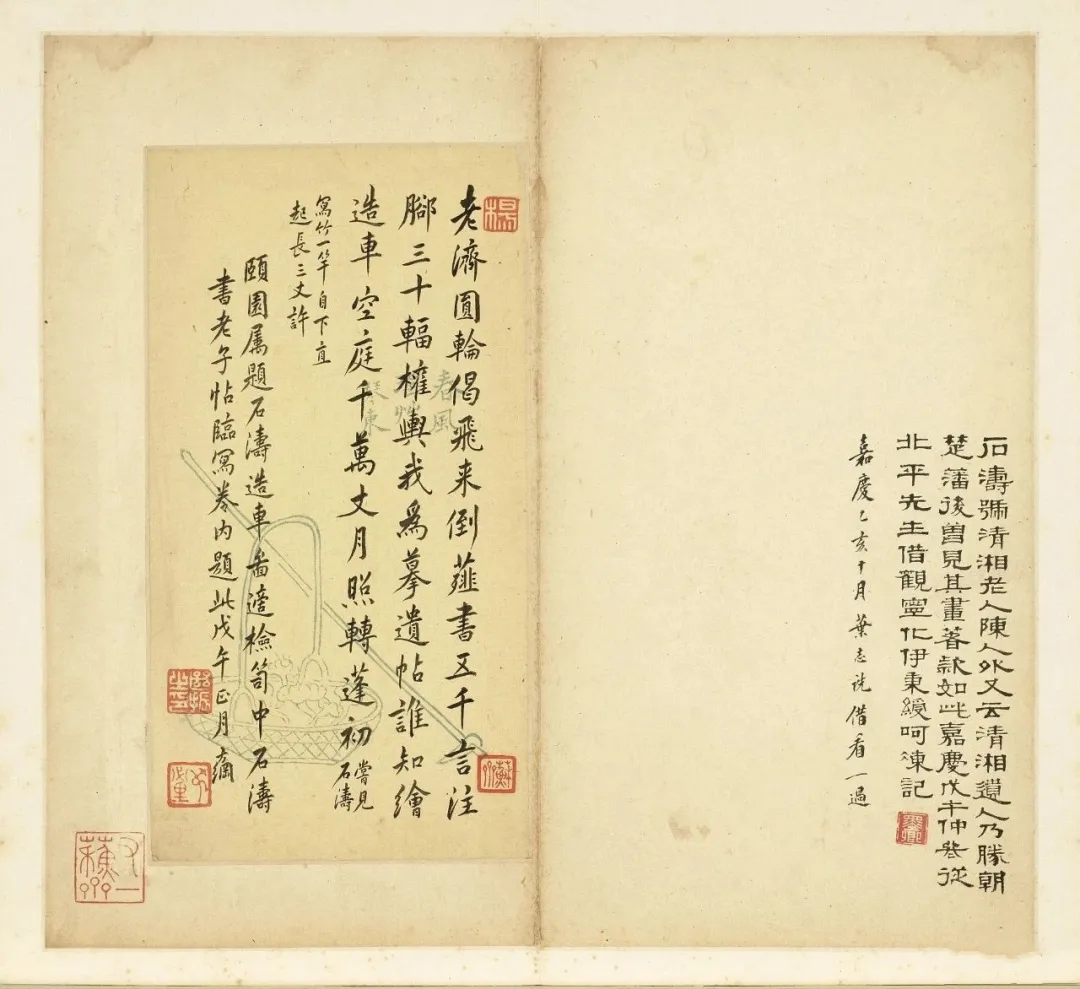 石濤號清湘老人陳人外又云清湘遺人乃勝朝
楚藩後曾見其畫著款如此嘉慶戊午仲冬從
北平先生借觀寧化伊秉綬呵凍記
嘉慶乙亥十月葉志詵借看一過
老濟圓輪偈飛来倒薤書五千言注
腳三十輻權輿我爲摹遺帖誰知繪
造車空庭千萬丈月照轉蓬初嘗見石濤
寫竹一竿自下直
起長三丈許
頤園属題石濤造車畵適檢笥中石濤
書老子帖臨寫卷內題此戊午正月
春風